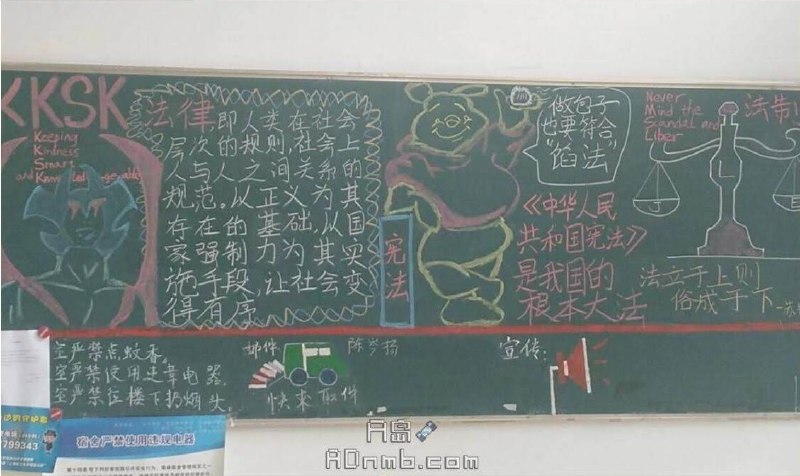 KKSK
Keeping
Kindness
Smart
and Knowledgeable
法律,即人类在社会
层次的规则,社会上
人与人之间关系的
规范。以正义为其
存在的基础,以国
家强制力为其实
施手段,让社会变
得有序
宪法
做包子
也要符合
"馅法"
《中华人民
共和国宪法》
是我国的
根本大法
Never
Mind the
Scandal and
Liber
J
L
法制
法立于上则
俗成于下
室严禁点蚊香。
室严禁使用违章电器
室严禁往楼下扔烟头
邮件
快来取件
宣传:
799343
宿舍严禁使用违规电器
A岛
ADnmb.com